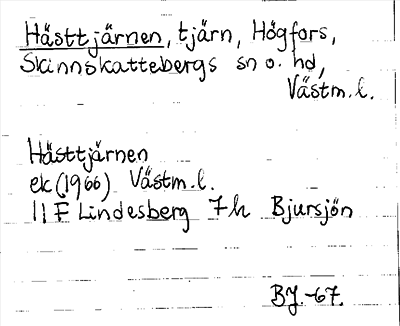 Hästtjärnen, tjärn, Högfors,
Skinnskattebergs sn o. hd,
Västm.l.
Hästtjärnen
ek (1966) Västm.l.
11 F Lindesberg 7h Bjursjön
BJ.-67.